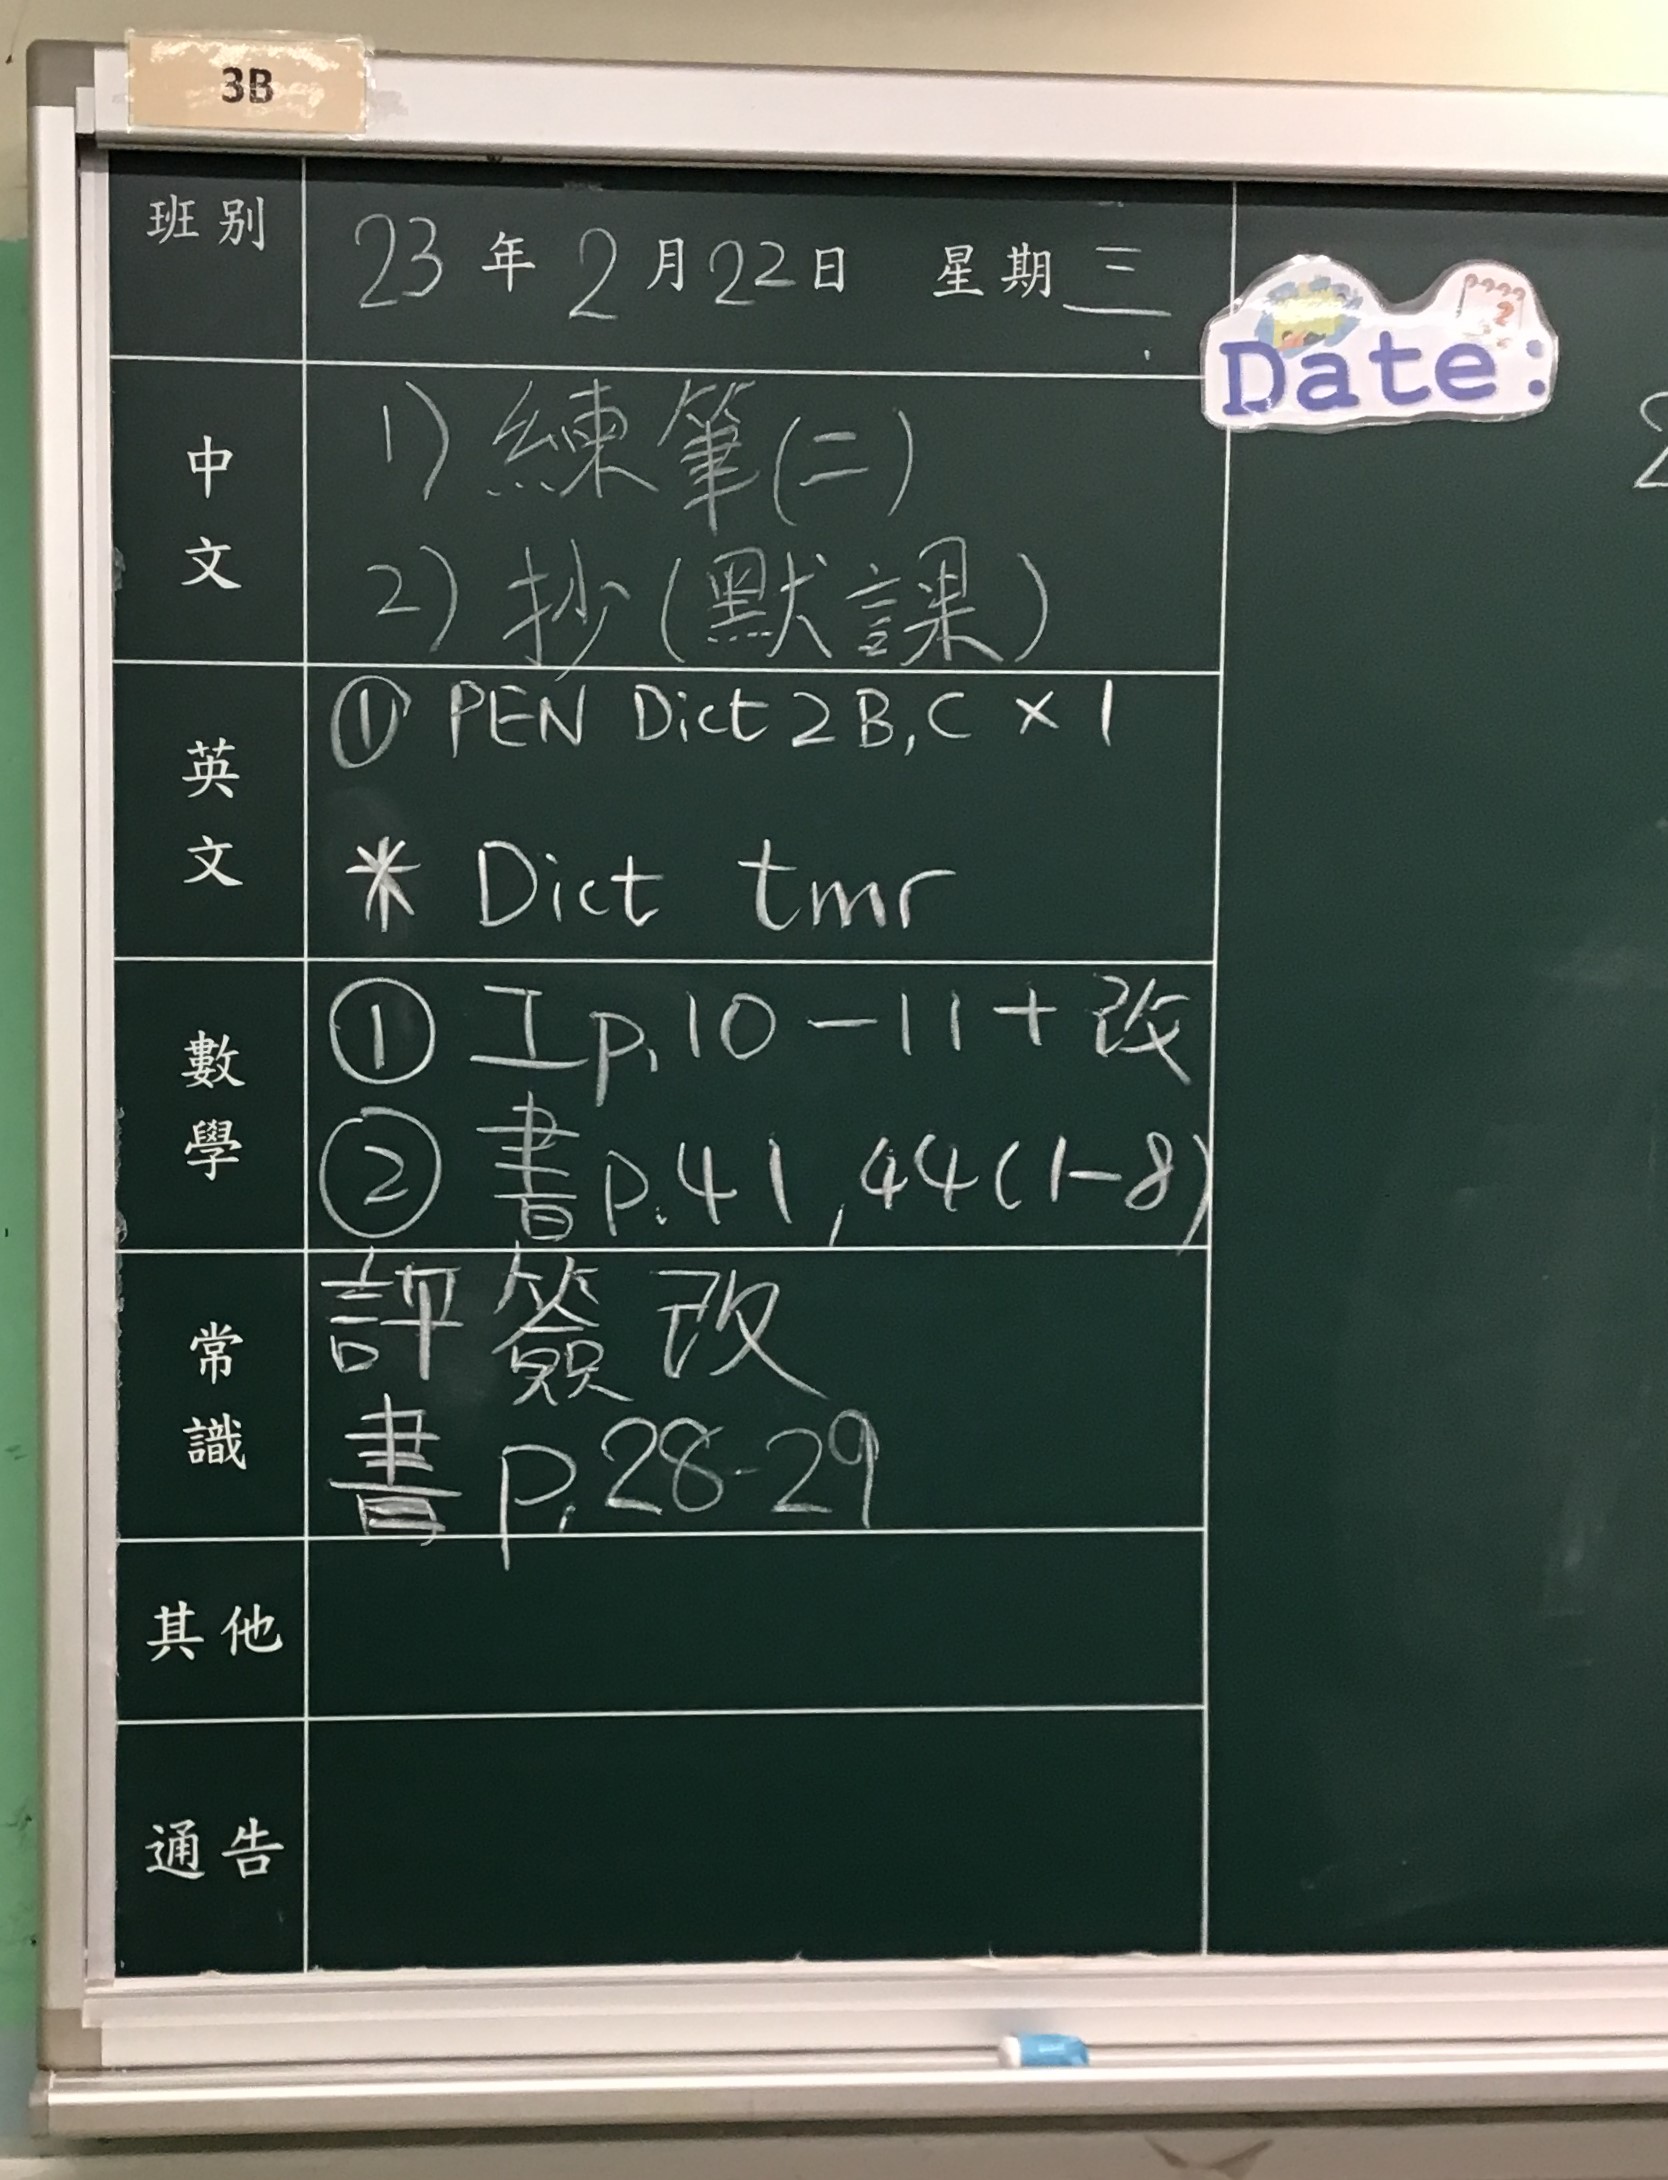 3B
班別 23年2月22日 星期三
Date:
中文
1) 練筆(二)
2) 抄(默課)
英文
① PEN Dict 2B, C × 1
* Dict tmr
數學
① 工p.10-11+改
② 書p.41,44(1-8)
常識
評簽改
書p.28-29
其他
通告